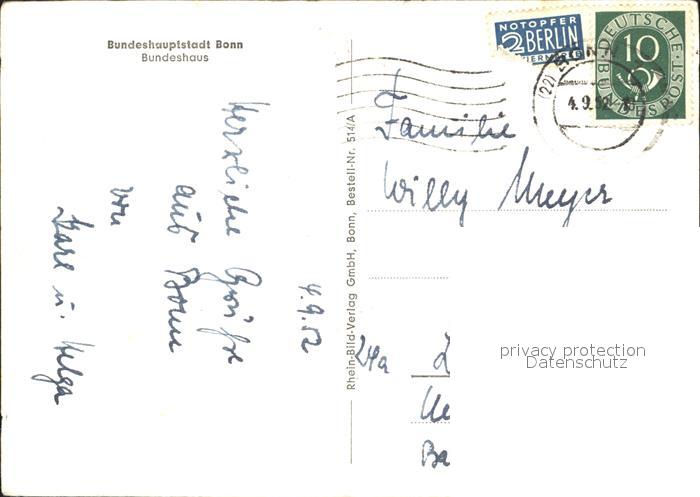 Bundeshauptstadt Bonn
Bundeshaus
4.9.52
Herzliche Grüße
aus Bonn
von
Karl u. Helga
Rhein-Bild-Verlag GmbH, Bonn, Bestell-Nr. 514/A
NOTOPFER
2 BERLIN
STEUERMARKE
DEUTSCHE
BUNDESPOST
10
(22c) BONN
4.9.52
Familie
Willy Meyer
24a
Ba
privacy protection
Datenschutz